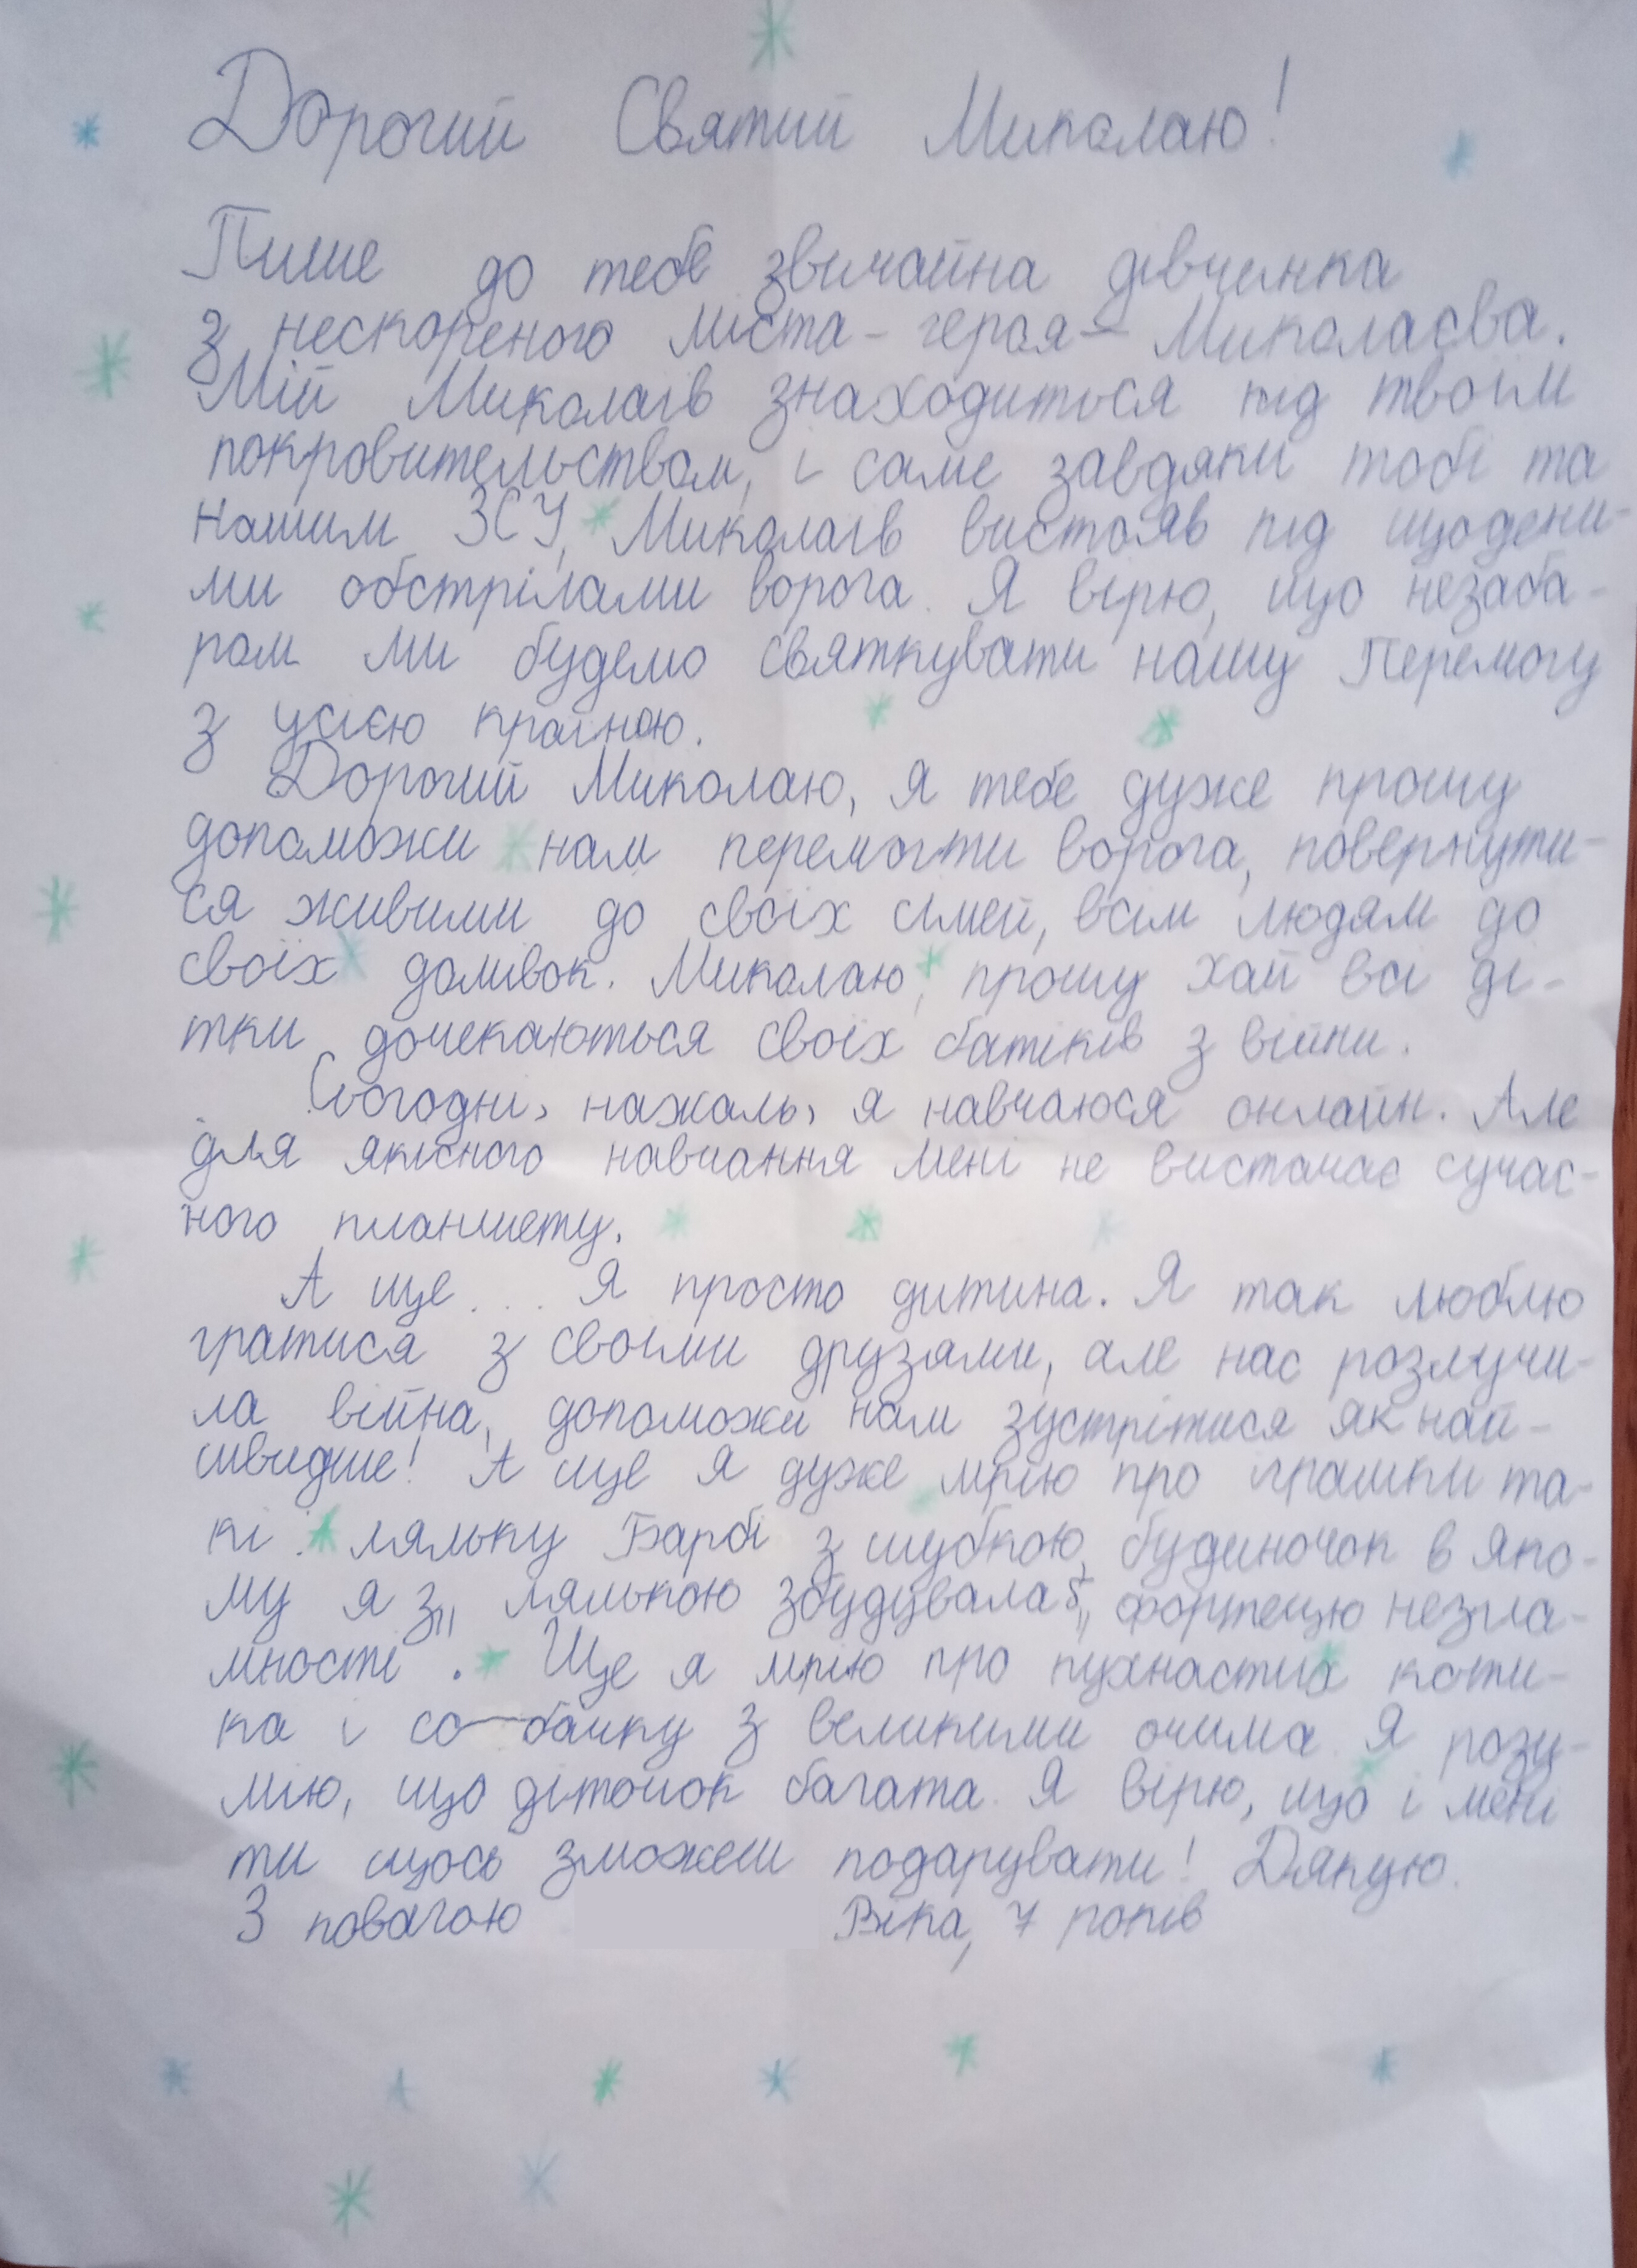 Дорогий Святий Миколаю!
Пише до тебе звичайна дівчинка
з нескореного міста-героя – Миколаєва.
Мій Миколаїв знаходиться під твоїм
покровительством, і саме завдяки тобі та
нашим ЗСУ, Миколаїв вистояв під щоденни-
ми обстрілами ворога. Я вірю, що незаба-
ром ми будемо святкувати нашу Перемогу
з усією країною.
Дорогий Миколаю, я тебе дуже прошу
допоможи нам перемогти ворога, повернути-
ся живими до своїх сімей, всім людям до
своїх домівок. Миколаю, прошу хай всі ді-
тки дочекаються своїх батьків з війни.
Сьогодні, нажаль, я навчаюся онлайн. Але
для якісного навчання мені не вистачає сучас-
ного планшету.
А ще... Я просто дитина. Я так люблю
гратися з своїми друзями, але нас розлучи-
ла війна, допоможи нам зустрітися як най-
швидше! А ще я дуже мрію про іграшки та-
кі: ляльку Барбі з шубкою, будиночок в яко-
му я з лялькою збудувала б "фортецю незла-
мності". Ще я мрію про пухнастих коти-
ка і со-бачку з великими очима. Я розу-
мію, що діточок багато. Я вірю, що і мені
ти щось зможеш подарувати! Дякую.
З повагою Віка, 7 років